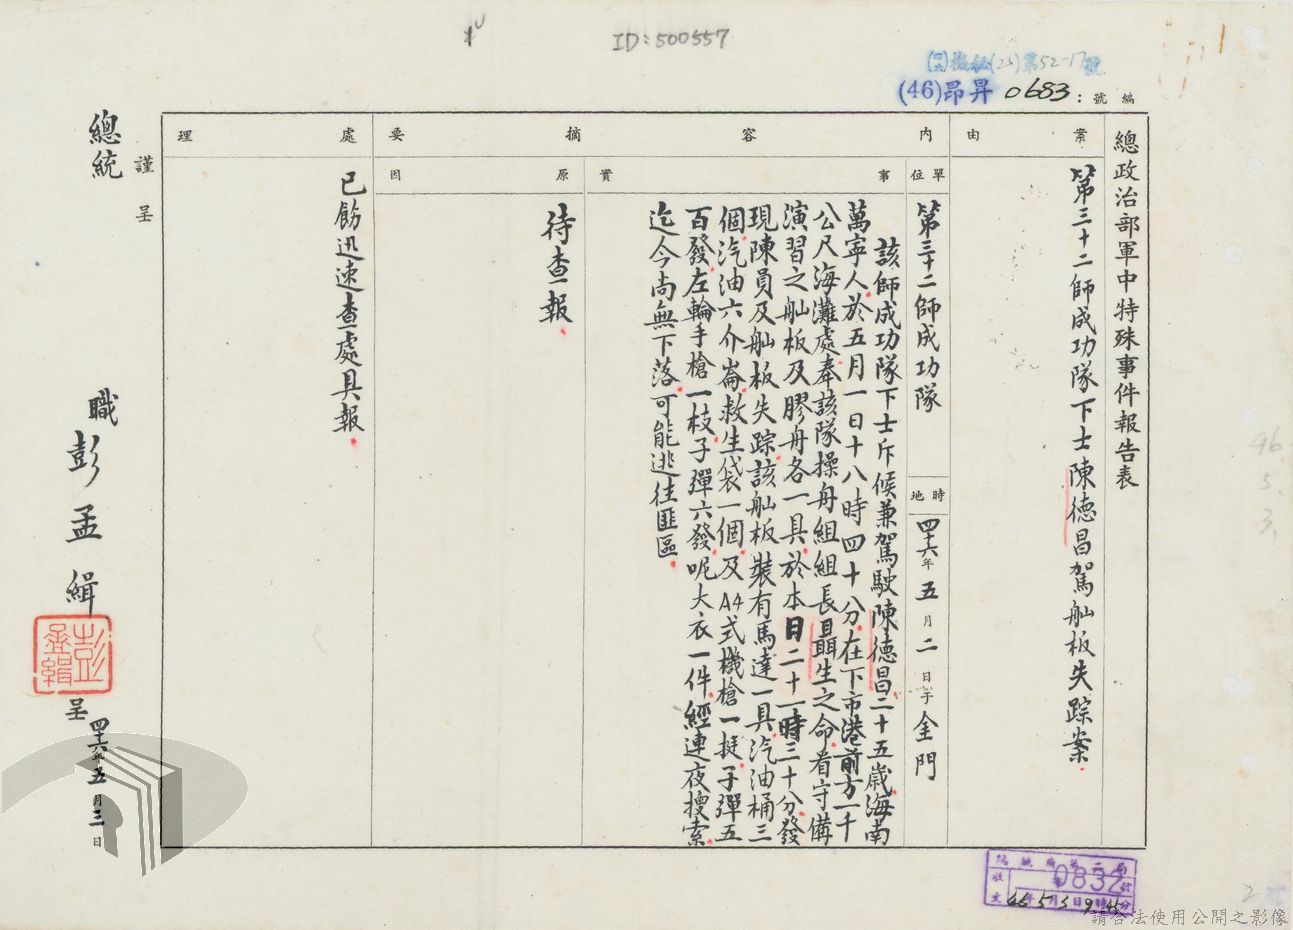 ID:500557
(46)昂昇 0683 :號編
總政治部軍中特殊事件報告表
案由
第三十二師成功隊下士陳德昌駕舢板失踪案
內容摘要
單位
第三十二師成功隊
時地
四十六年五月二日于金門
事實
該師成功隊下士斥候兼駕駛陳德昌二十五歲海南
萬寧人於五月一日十八時四十分在下市港前方一千
公尺海灘處奉該隊操舟組組長聶生之命看守備
演習之舢板及膠舟各一具於本日二十一時三十分發
現陳員及舢板失踪該舢板裝有馬達一具汽油桶三
個汽油六介崙救生袋一個及A4式機槍一挺子彈五
百發左輪手槍一枝子彈六發呢大衣一件經連夜搜索
迄今尚無下落可能逃往匪區
原因
待查報
處理
已飭迅速查處具報
謹呈
總統
職 彭孟緝
彭孟緝
呈
四十六年五月三日
總統府第二局
收文
0832號
46年5月3日9時45分
46
5.
3.
2
請合法使用公開之影像